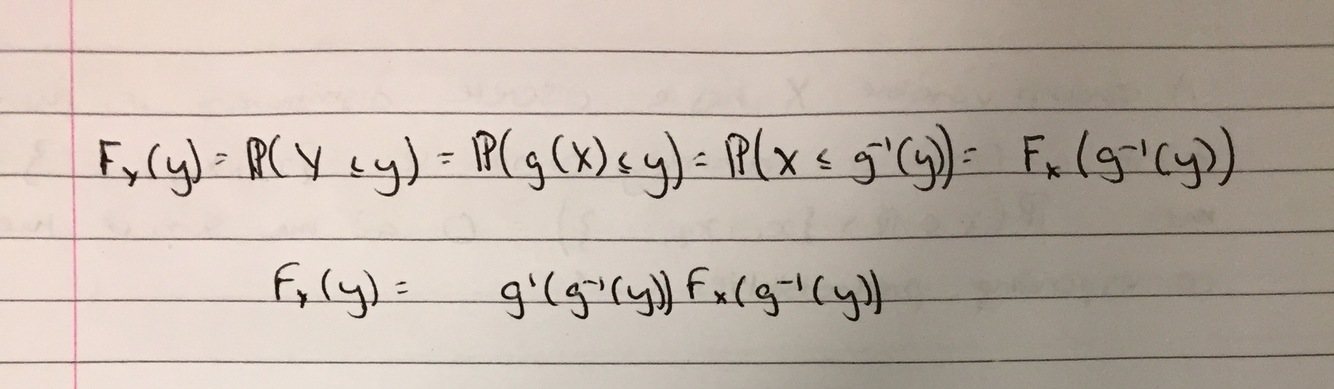 F_Y(y) = ℙ(Y ≤ y) = ℙ(g(X) ≤ y) = ℙ(X ≤ g⁻¹(y)) = F_X(g⁻¹(y))
F_Y(y) = g'(g⁻¹(y)) F_X(g⁻¹(y))